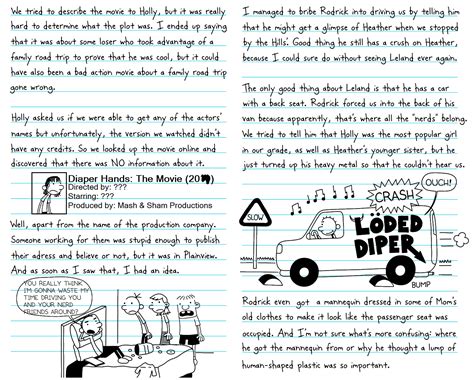 We tried to describe the movie to Holly, but it was really
hard to determine what the plot was. I ended up saying
that it was about some loser who took advantage of a
family road trip to prove that he was cool, but it could
have also been a bad action movie about a family road trip
gone wrong.
Holly asked us if we were able to get any of the actors'
names but unfortunately, the version we watched didn't
have any credits. So we looked up the movie online and
discovered that there was NO information about it.
Diaper Hands: The Movie (20
Directed by: ???
Starring: ???
Produced by: Mash & Sham Productions
Well, apart from the name of the production company.
Someone working for them was stupid enough to publish
their adress and believe or not, but it was in Plainview.
And as soon as I saw that, I had an idea.
YOU REALLY THINK
I'M GONNA WASTE MY
TIME DRIVING YOU
AND YOUR NERD
FRIENDS AROUND?
I managed to bribe Rodrick into driving us by telling him
that he might get a glimpse of Heather when we stopped
by the Hills'. Good thing he still has a crush on Heather,
because I could sure do without seeing Leland ever again.
The only good thing about Leland is that he has a car
with a back seat. Rodrick forced us into the back of his
van because apparently, that's where all the "nerds" belong.
We tried to tell him that Holly was the most popular girl
in our grade, as well as Heather's younger sister, but he
just turned up his heavy metal so that he couldn't hear us.
SLOW
CRASH
OUCH!
LÖDED
DIPER
BUMP
Rodrick even got a mannequin dressed in some of Mom's
old clothes to make it look like the passenger seat was
occupied. And I'm not sure what's more confusing: where
he got the mannequin from or why he thought a lump of
human-shaped plastic was so important.